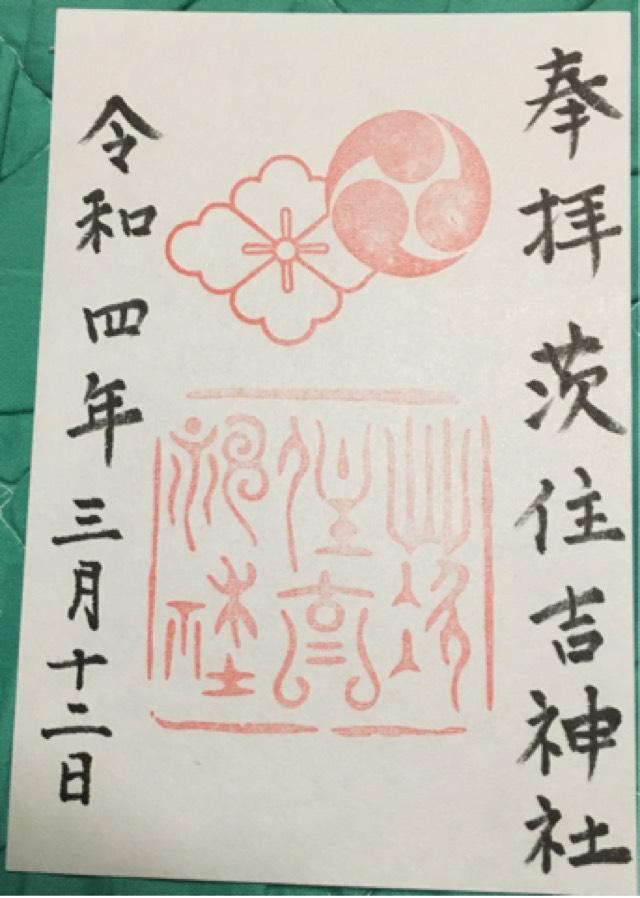 奉拝 茨住吉神社
茨住吉神社
令和四年三月十二日